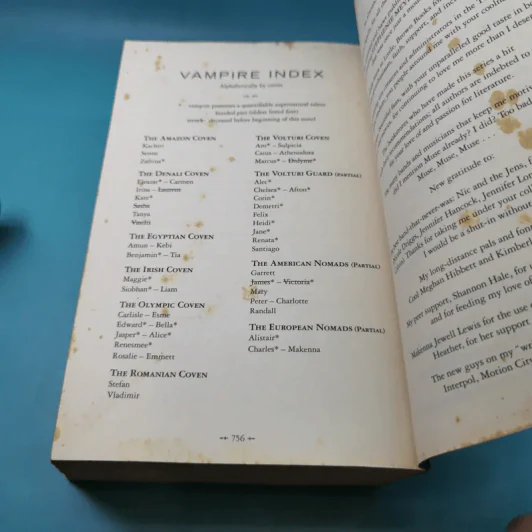 VAMPIRE INDEX
Alphabetically by coven
* vampire possesses a quantifiable supernatural talent
– bonded pair (oldest listed first)
deceased before beginning of this novel
THE AMAZON COVEN
Kachiri
Senna
Zafrina*
THE DENALI COVEN
Eleazar* – Carmen
Irina – Laurent
Kate*
Sasha
Tanya
Vasilii
THE EGYPTIAN COVEN
Amun – Kebi
Benjamin* – Tia
THE IRISH COVEN
Maggie*
Siobhan* – Liam
THE OLYMPIC COVEN
Carlisle – Esme
Edward* – Bella*
Jasper* – Alice*
Renesmee*
Rosalie – Emmett
THE ROMANIAN COVEN
Stefan
Vladimir
THE VOLTURI COVEN
Aro* – Sulpicia
Caius – Athenodora
Marcus* – Didyme*
THE VOLTURI GUARD (PARTIAL)
Alec*
Chelsea* – Afton*
Corin*
Demetri*
Felix
Heidi*
Jane*
Renata*
Santiago
THE AMERICAN NOMADS (PARTIAL)
Garrett
James* – Victoria*
Mary
Peter – Charlotte
Randall
THE EUROPEAN NOMADS (PARTIAL)
Alistair*
Charles* – Makenna
756
with your unparalleled good taste in
to love me more than I
who have made this series a hit
recommendations; all authors are indebted to
love and passion for literature.
bands and musicians that keep me
did I mention Muse already? I did? Too bad
Muse, Muse, Muse . . .
New gratitude to:
band-that-never-was: Nic and the Jens,
Jennifer Hancock, Jennifer
Thanks for taking me under your
I would be a shut-in without
My long-distance pals and
Cool Meghan Hibbett and Kimberly
My peer support, Shannon Hale, for
and for feeding my love of
Makenna Jewell Lewis for the use
Heather, for her support
The new guys on my
Interpol, Motion City